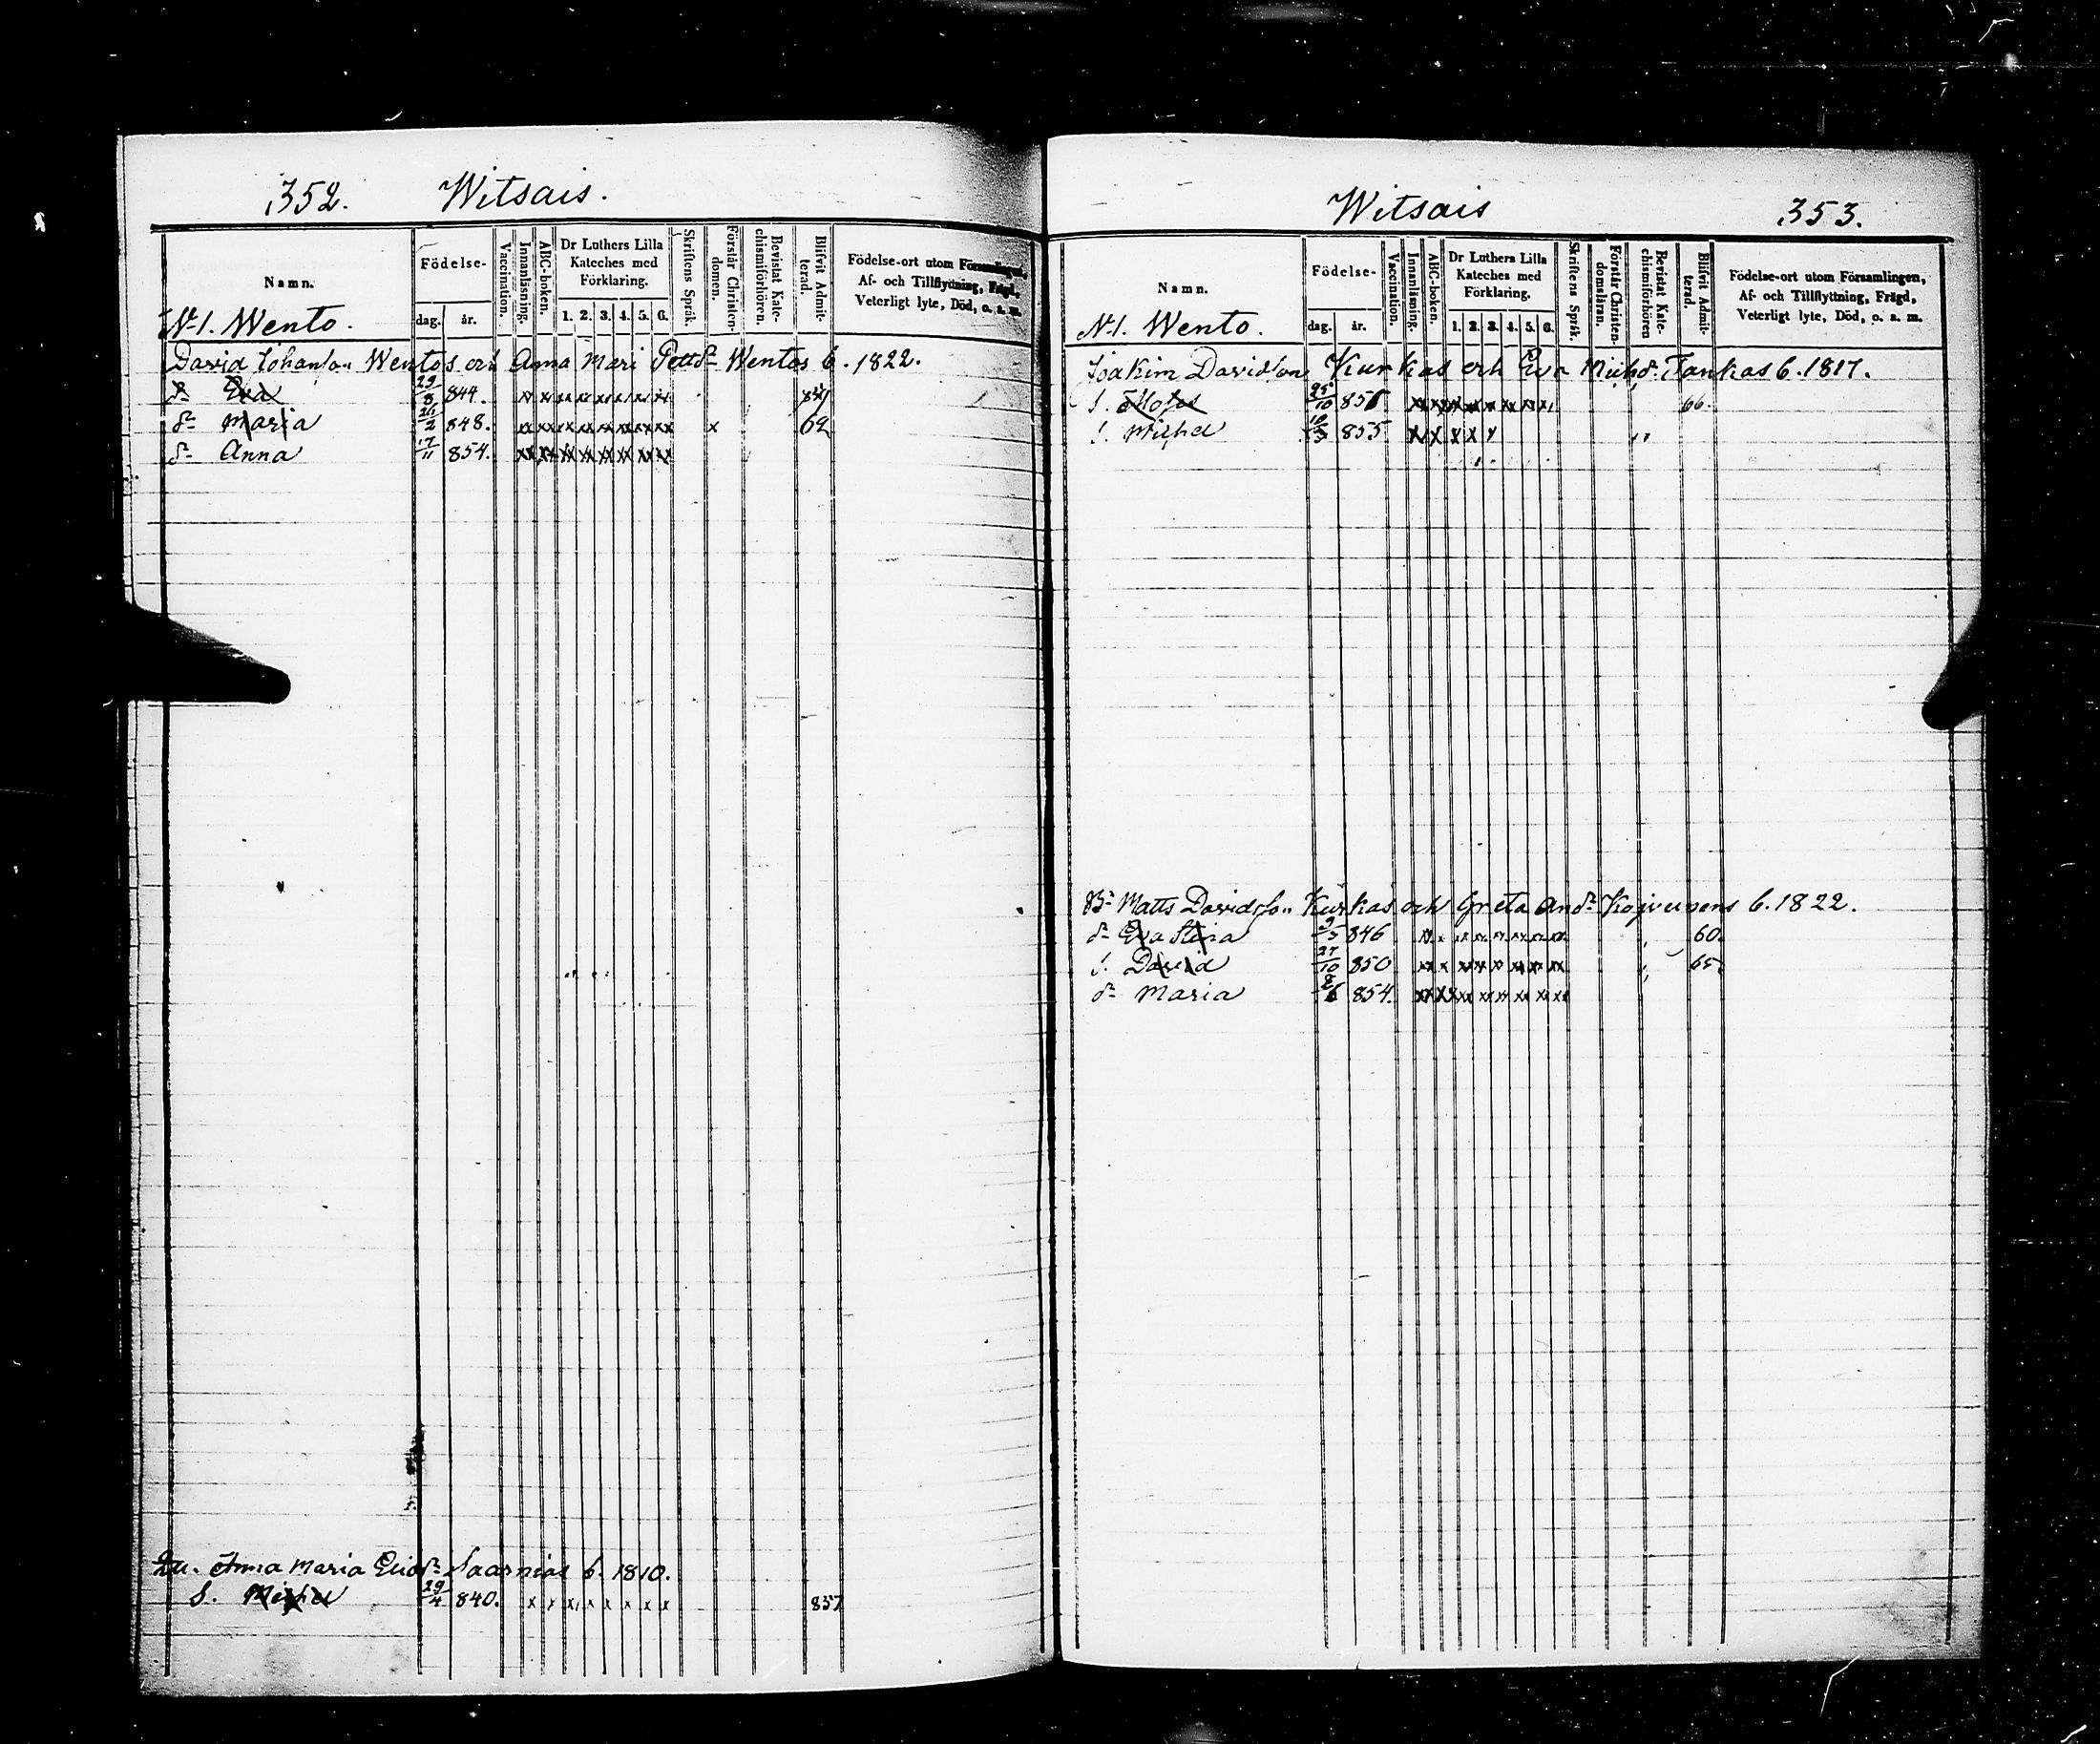 352. Witsais.
Namn.
Födelse-
dag. år.
Vaccination.
Innanläsning.
ABC-boken.
Dr Luthers Lilla
Kateches med
Förklaring.
1. 2. 3. 4. 5. 6.
Skriftens Språk.
Förstår Christen-
domen.
Bevistat Kate-
chismiförhören.
Blifvit Admit-
terad.
Födelse-ort utom Församlingen,
Af- och Tillflyttning, Frägd,
Veterligt lyte, Död, o. s. m.
N1. Wento.
David Johansson Wentos och Anna Mari Pettsdr Wentos 6. 1822.
dr Eva 29/8 844.
dr Maria 2 848. x 62
dr Anna 17/11 854.
Anna Maria Saarnias 6. 1810.
S. Michel 29/4 840. x x x x x x x x 857
Witsais 353.
Namn.
Födelse-
dag. år.
Vaccination.
Innanläsning.
ABC-boken.
Dr Luthers Lilla
Kateches med
Förklaring.
1. 2. 3. 4. 5. 6.
Skriftens Språk.
Förstår Christen-
domsläran.
Bevistat Kate-
chismiförhören
Blifvit Admit-
terad.
Födelse-ort utom Församlingen,
Af- och Tillflyttning, Frägd,
Veterligt lyte, Död, o. s. m.
N1. Wento.
Joakim Davidson Kurkas och Eva Michdr Tankas 6. 1817.
S. Moses 25/10 851 66.
S. Michel 855
Br Matts Davidsson Kurkas och Greta Andr Kojvusens 6. 1822.
dr Eva Stina 9/5 846 60.
S. David 27/10 850 65.
dr Maria 854.